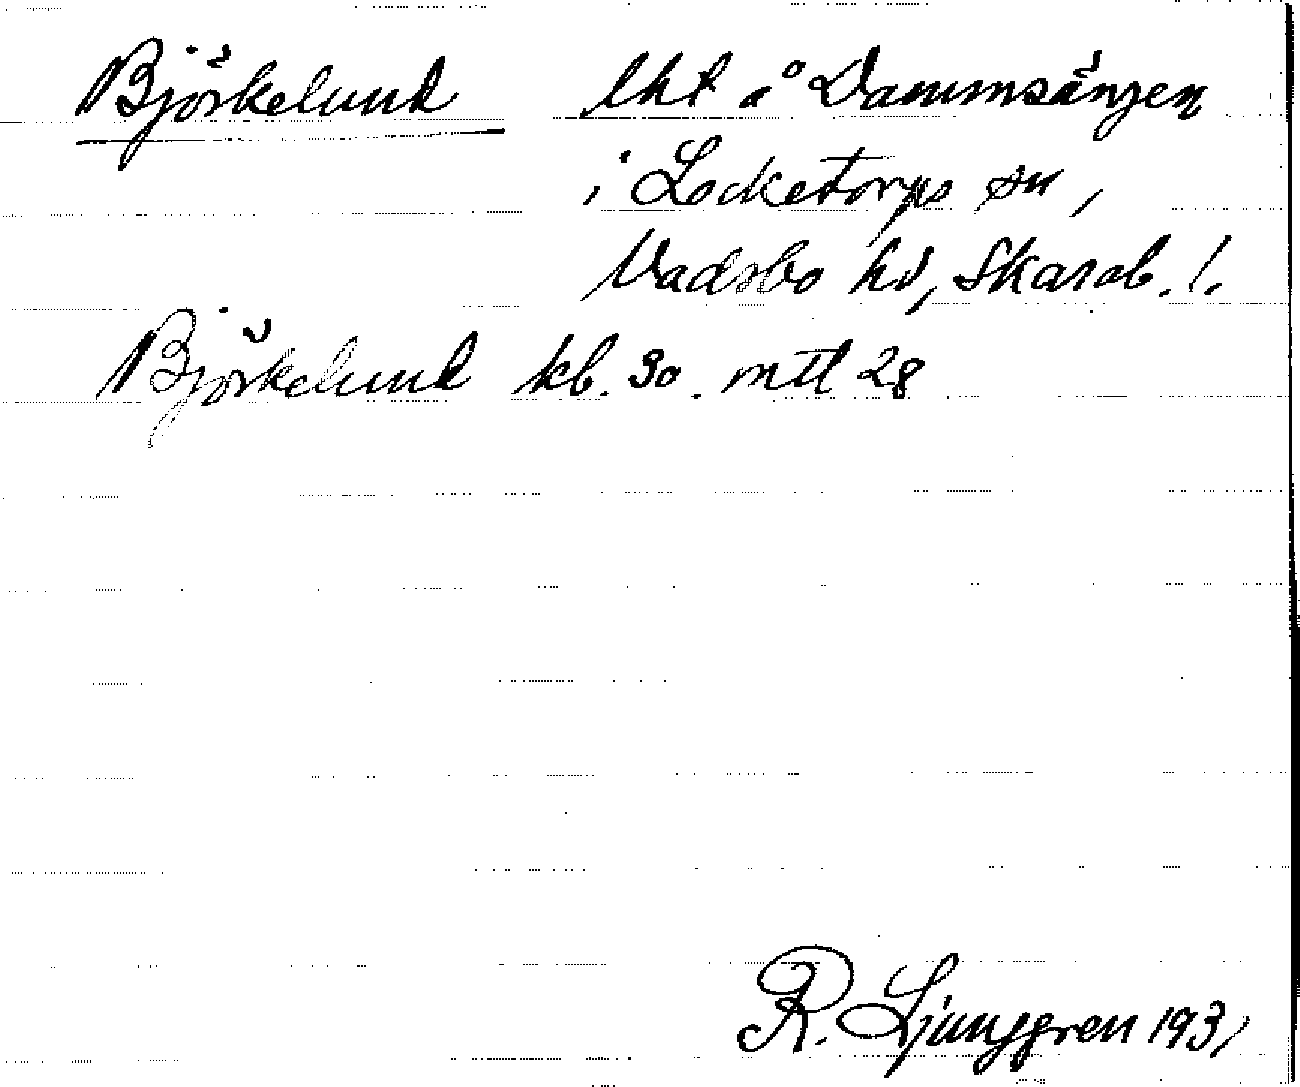 Björkelund lht å Dammsängen
i Locketorps sn,
Vadsbo hd, Skarab. l.
Björkelund kb. 30. mtl 28
R. Ljunggren 1931